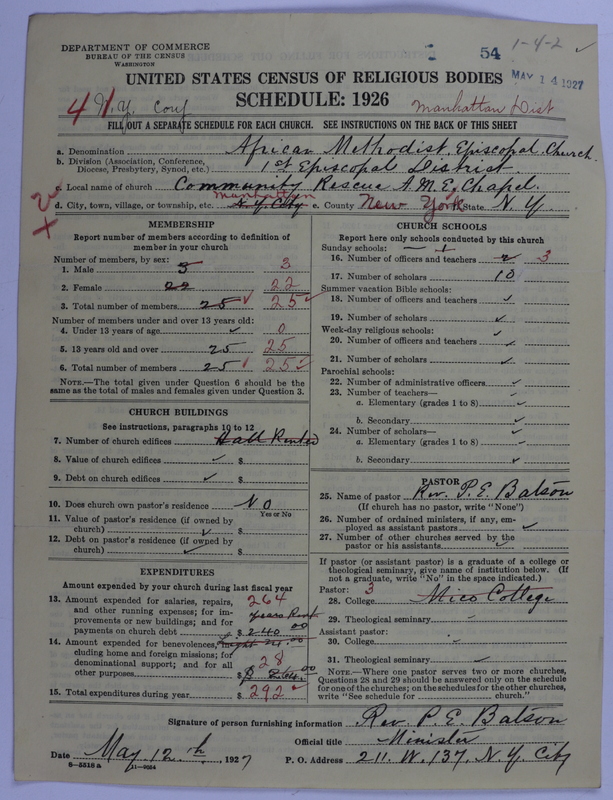 DEPARTMENT OF COMMERCE
BUREAU OF THE CENSUS
WASHINGTON
54
1-4-2 ✓
MAY 14 1927
UNITED STATES CENSUS OF RELIGIOUS BODIES
SCHEDULE: 1926
4 N.Y. Conf
Manhattan Dist
FILL OUT A SEPARATE SCHEDULE FOR EACH CHURCH. SEE INSTRUCTIONS ON THE BACK OF THIS SHEET
a. Denomination African Methodist Episcopal Church
b. Division (Association, Conference, Diocese, Presbytery, Synod, etc.) 1st Episcopal District
c. Local name of church Community Rescue A.M.E. Chapel
Manhattan
d. City, town, village, or township, etc. N.Y. City e. County New York f. State N.Y.
MEMBERSHIP
Report number of members according to definition of
member in your church
Number of members, by sex:
1. Male 3 3
2. Female 22 22
3. Total number of members 25 ✓ 25 ✓
Number of members under and over 13 years old:
4. Under 13 years of age ✓ 0
5. 13 years old and over 25 25
6. Total number of members 25 ✓ 25 ✓
NOTE.—The total given under Question 6 should be the
same as the total of males and females given under Question 3.
CHURCH BUILDINGS
See instructions, paragraphs 10 to 12
7. Number of church edifices Hall Rented
8. Value of church edifices ✓ $
9. Debt on church edifices ✓ $
10. Does church own pastor's residence NO
Yes or No
11. Value of pastor's residence (if owned by
church) ✓ $
12. Debt on pastor's residence (if owned by
church) ✓ $
EXPENDITURES
Amount expended by your church during last fiscal year
13. Amount expended for salaries, repairs, 264
and other running expenses; for im-
provements or new buildings; and for
payments on church debt $ 240 00
14. Amount expended for benevolences, in-
cluding home and foreign missions; for
denominational support; and for all 28
other purposes $
15. Total expenditures during year $ 292 ✓
CHURCH SCHOOLS
Report here only schools conducted by this church
Sunday schools:
16. Number of officers and teachers 2 3
17. Number of scholars 10
Summer vacation Bible schools:
18. Number of officers and teachers ✓
19. Number of scholars ✓
Week-day religious schools: ✓
20. Number of officers and teachers ✓
21. Number of scholars ✓
Parochial schools:
22. Number of administrative officers ✓
23. Number of teachers—
a. Elementary (grades 1 to 8) ✓
b. Secondary ✓
24. Number of scholars—
a. Elementary (grades 1 to 8) ✓
b. Secondary ✓
PASTOR
25. Name of pastor Rev. P. E. Batson
(If church has no pastor, write "None")
26. Number of ordained ministers, if any, em-
ployed as assistant pastors ✓
27. Number of other churches served by the
pastor or his assistants ✓
If pastor (or assistant pastor) is a graduate of a college or
theological seminary, give name of institution below. (If
not a graduate, write "No" in the space indicated.)
Pastor: 3
28. College Mico College
29. Theological seminary
Assistant pastor:
30. College
31. Theological seminary ✓
NOTE.—Where one pastor serves two or more churches,
Questions 28 and 29 should be answered only on the schedule
for one of the churches; on the schedules for the other churches,
write "See schedule for ........ church."
Signature of person furnishing information Rev. P. E. Batson
Official title Minister
Date May 12th, 1927 P. O. Address 211 W. 137, N.Y. City
8—5318 a 11—9054